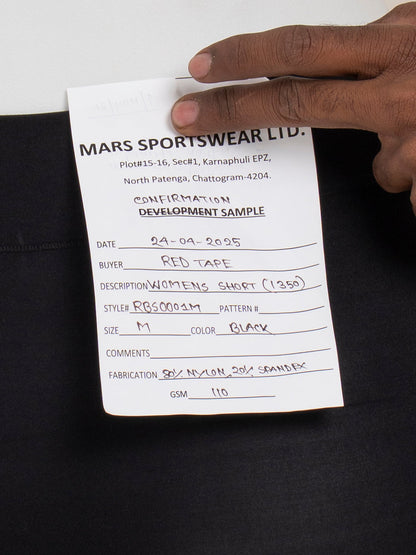 MARS SPORTSWEAR LTD.
Plot#15-16, Sec#1, Karnaphuli EPZ,
North Patenga, Chattogram-4204.
CONFIRMATION
DEVELOPMENT SAMPLE
DATE 24-04-2025
BUYER RED TAPE
DESCRIPTION WOMENS SHORT (1350)
STYLE# RBS0001M PATTERN #
SIZE M COLOR BLACK
COMMENTS
FABRICATION 80% NYLON, 20% SPANDEX
GSM 110